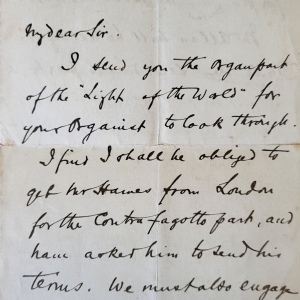 My dear Sir.
I send you the Organ part
of the "Light of the World" for
your Organist to look through.
I find I shall be obliged to
get Mr Hawes from London
for the Contra fagotto part, and
have asked him to send his
terms. We must also engage